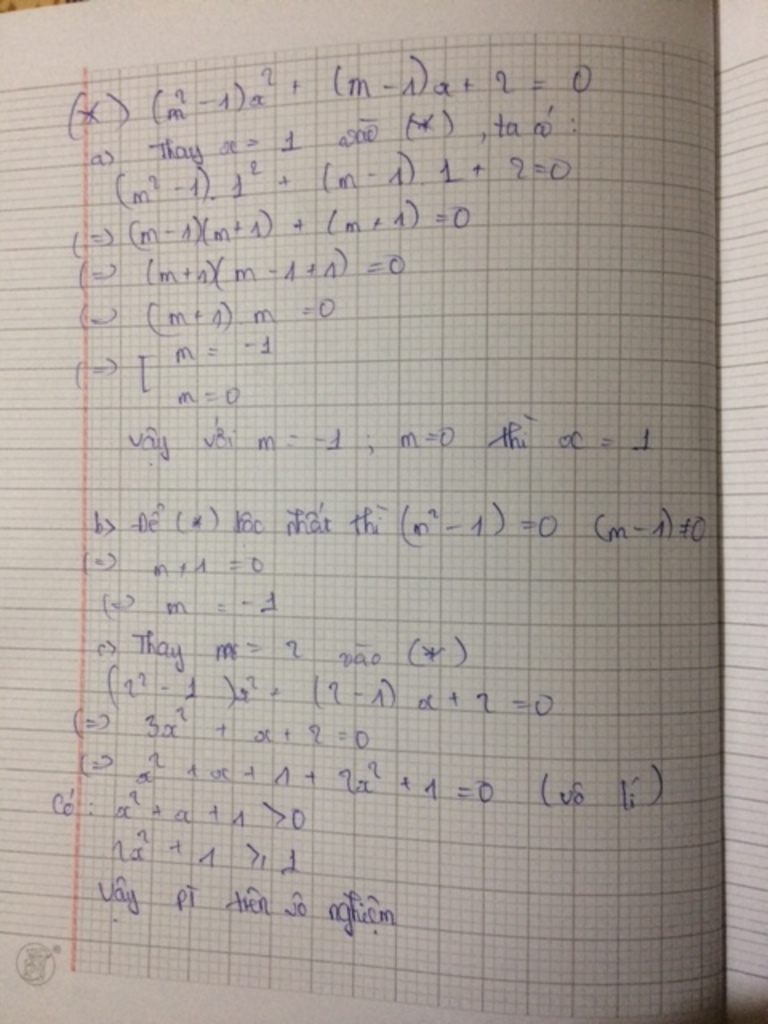 (*) (m² - 1)x² + (m - 1)x + 2 = 0
a) Thay x = 1 vào (*), ta có:
(m² - 1). 1² + (m - 1) 1 + 2 = 0
(=) (m - 1)(m + 1) + (m + 1) = 0
(=) (m + 1)(m - 1 + 1) = 0
(=) (m + 1) m = 0
(=) [ m = -1
m = 0
Vậy với m = -1 ; m = 0 thì x = 1
b) Để (*) bậc nhất thì (m² - 1) = 0 (m - 1) ≠ 0
(=) m + 1 = 0
(=) m = -1
c) Thay m = 2 vào (*)
(2² - 1)x² + (2 - 1) x + 2 = 0
(=) 3x² + x + 2 = 0
(=) x² + x + 1 + 2x² + 1 = 0 (vô lí)
Có: x² + x + 1 > 0
2x² + 1 ⩾ 1
Vậy pt trên vô nghiệm